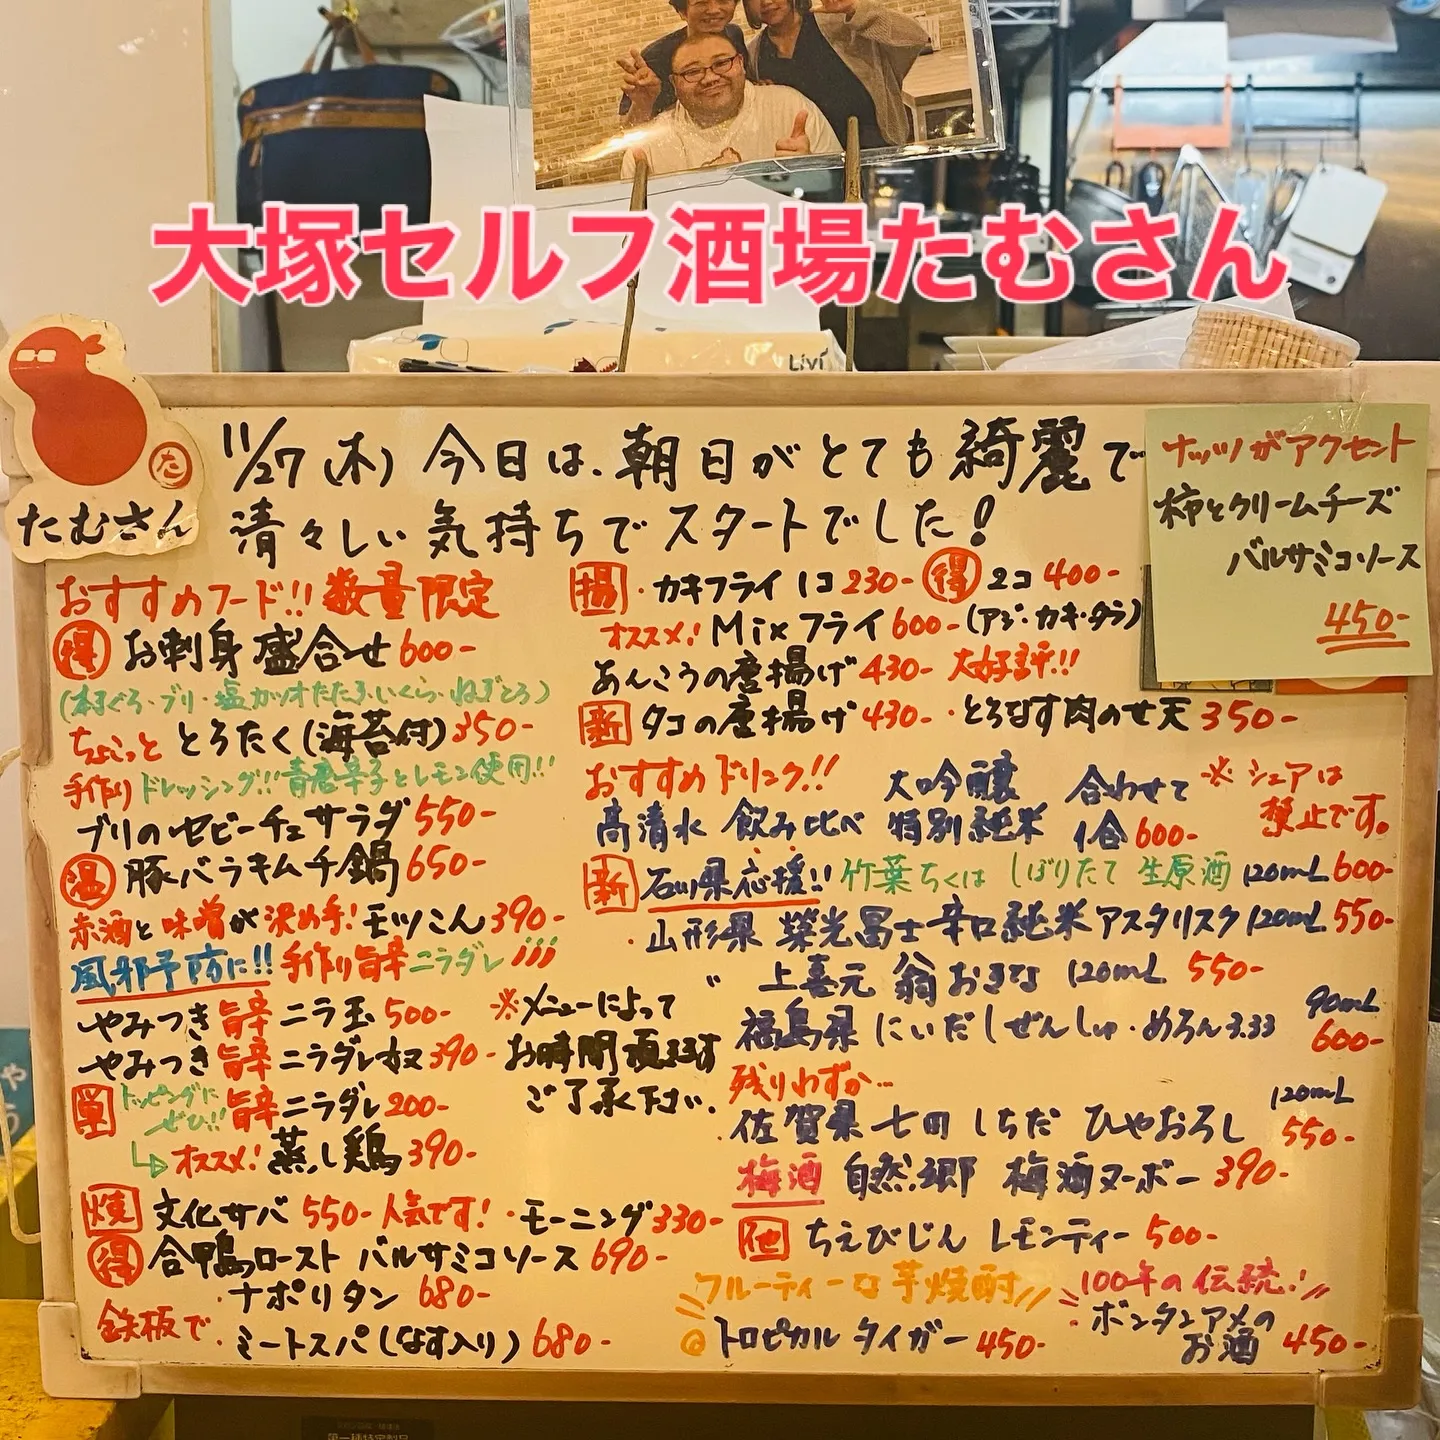 大塚セルフ酒場たむさん
Livi
た
たむさん
11/27(木) 今日は、朝日がとても綺麗で
清々しい気持ちでスタートでした!
ナッツがアクセント
柿とクリームチーズ
バルサミコソース
450-
おすすめフード!! 数量限定
得 お刺身盛合せ 600-
(本まぐろ・ブリ・塩カツオたたき・いくら・ねぎとろ)
ちょこっと とろたく(海苔付) 350-
手作りドレッシング!! 青唐辛子とレモン使用!!
ブリのセビーチェサラダ 550-
温 豚バラキムチ鍋 650-
赤酒と味噌が決め手! モツこん 390-
風邪予防に!! 手作り旨辛ニラダレ
やみつき旨辛ニラ玉 500-
やみつき旨辛ニラダレ奴 390-
※メニューによって
お時間頂きます
ご了承下さい。
単 トッピングにぜひ!! 旨辛ニラダレ 200-
オススメ! 蒸し鶏 390-
焼 文化サバ 550- 人気です! ・モーニング 330-
得 合鴨ロースト バルサミコソース 690-
鉄板で ・ナポリタン 680-
・ミートスパ(なす入り) 680-
揚 ・カキフライ 1コ 230- 得 2コ 400-
オススメ! Mixフライ 600- (アジ・カキ・タラ)
あんこうの唐揚げ 430- 大好評!!
新 タコの唐揚げ 430- ・とろなす肉のせ天 350-
おすすめドリンク!!
高清水 飲み比べ 大吟醸 特別純米 合わせて1合 600-
※シェアは禁止です。
新 石川県応援!! 竹葉ちくは しぼりたて 生原酒 120mL 600-
・山形県 榮光冨士 辛口純米アスタリスク 120mL 550-
〃 上喜元 翁 おきな 120mL 550-
福島県 にいだしぜんしゅ・めろん3.33 90mL 600-
残りわずか…
・佐賀県 七田 しちだ ひやおろし 120mL 550-
梅酒 自然郷 梅酒ヌーボー 390-
他 ちえびじん レモンティー 500-
フルーティーな芋焼酎
トロピカルタイガー 450-
100年の伝統!
・ボンタンアメのお酒 450-